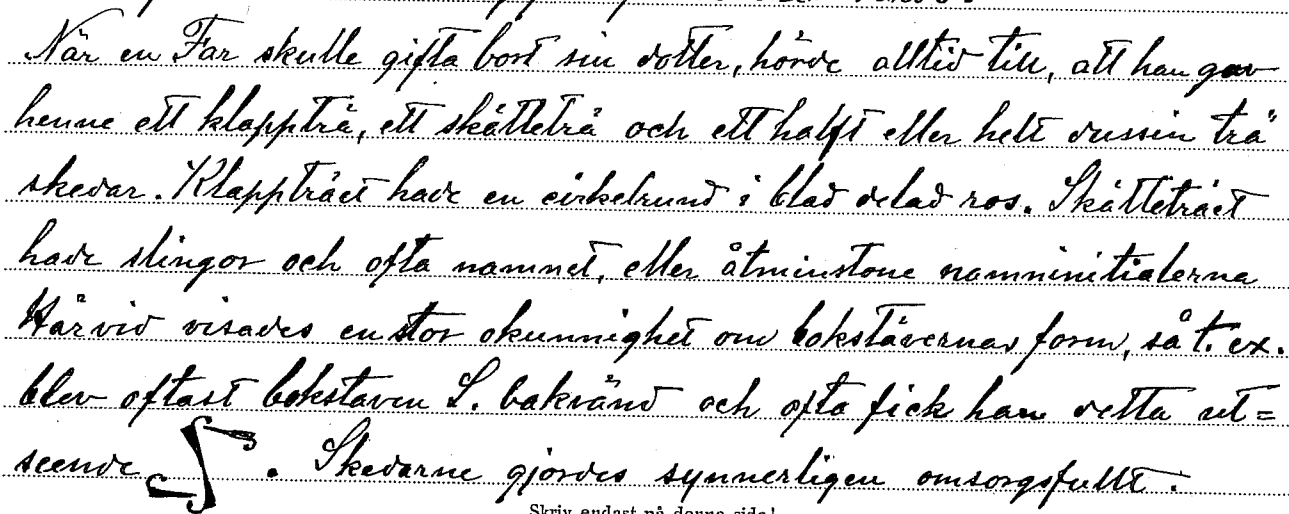 När en Far skulle gifta bort sin dotter, hörde alltid till, att han gav
henne ett klappträ, ett skätteträ och ett halft eller helt dussin trä
skedar. Klappträet hade en cirkelrund i blad delad ros. Skätteträet
hade slingor och ofta namnet, eller åtminstone namninitialerna
Härvid visades en stor okunnighet om bokstävernas form, så t. ex.
blev oftast bokstaven S. bakvänd och ofta fick han detta ut=
seende . Skedarne gjordes synnerligen omsorgsfullt.
Skriv endast på denna sida!